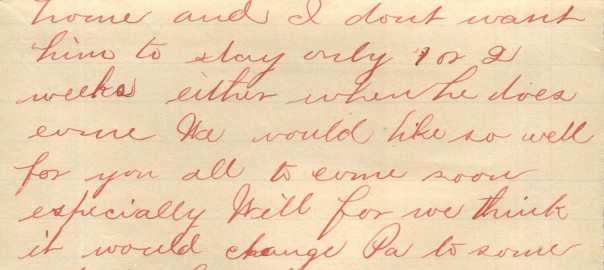 home and I dont want
him to stay only 1 or 2
weeks either when he does
come We would like so well
for you all to come soon
especially Will for we think
it would change Pa to some